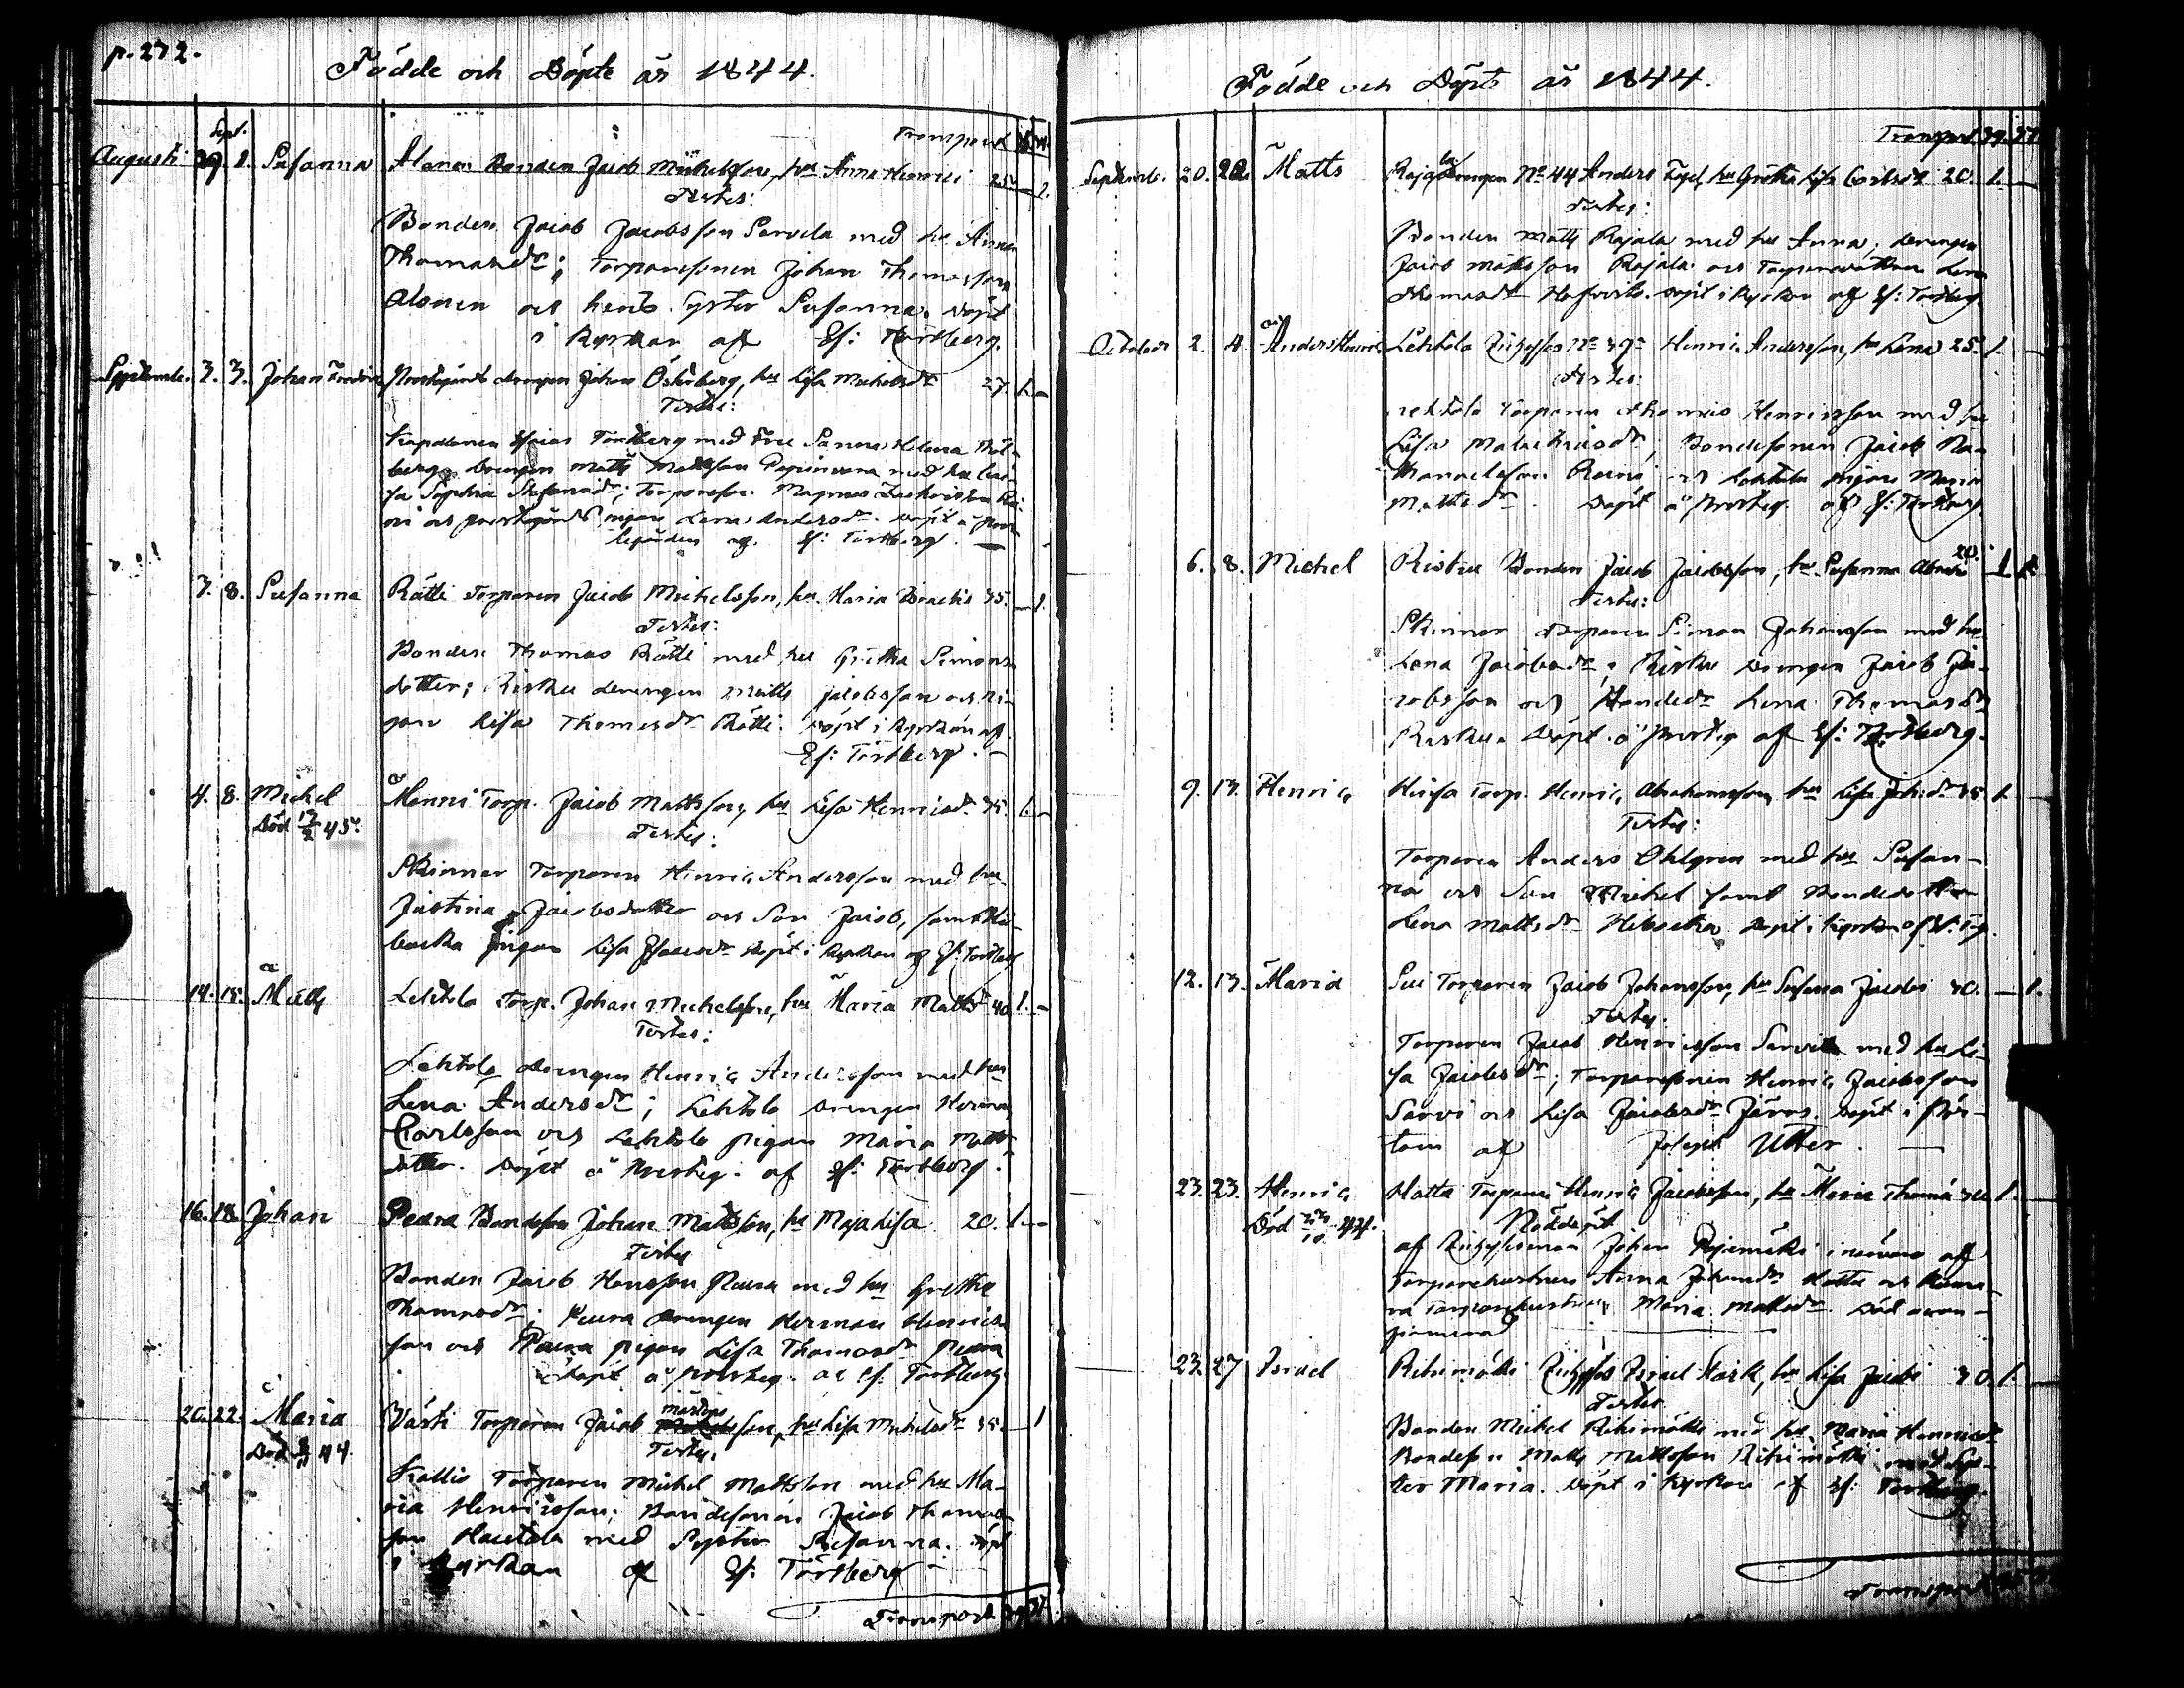 p. 272.
Födde och Döpte år 1844.
Transport
Sept.
Augusti 29. 1. Susanna Alanen Bonden Jacob Michelsson, hu Anna Henrici 25 — 1.
Testes:
Bonden Jacob Jacobsson Sarvela med hu Anna
Thomasdr; Torparesonen Johan Thomasson
Alanen och hans Syster Susanna. Döpt
i Kyrkan af Es: Törtberg.
Septemb. 3. 3. Johan Prostgårds drengen Johan Österberg, hu Lisa Michelsdr 27. 1. —
Testes:
Kapelanen Esaias Törtberg med Fru Sanna Helena
berg, Drengen Matts Mattsson med hu
sa Sophia; Torpareson Magnus
och prostegårds pigan Lena Andersdr. Döpt å pros
tegården af Es: Törtberg. —
3. 8. Susanna Rätti Torparen Jacob Michelsson, hu Maria Isracks 35. — 1.
Testes:
Bonden Thomas Rätti med hu Gretha Simons
dotter; Risku drengen Matts Jacobsson och Pi-
gan Lisa Thomasdr Rätti. Döpt i Kyrkan af
Es: Törtberg. —
4. 8. Michel Manni Torp. Jacob Mattsson, hu Lisa Henricsdr 35. 1. —
Död 17/2 45. Testes:
Skinnar Torparen Henric Andersson med hu
Justina Jacobsdotter och Son Jacob, samt
backa pigan Lisa Döpt i Kyrkan af Es: Törtberg
14. 15. Matts Lehtola Torp. Johan Michelsson, hu Maria Mattsdr 40 1. —
Testes:
Lehtola Drengen Henric Andersson med hu
Lena Andersdr; Lehtola Drengen Herman
Carlsson och Lehtola pigan Maria Matts
dotter. Döpt å Prosteg. af Es: Törtberg.
16. 18. Johan Peura Bondeson Johan Mattsson, hu Maja Lisa 20. 1. —
Testes
Bonden Jacob Hansson Peura med hu Gretha
Thomasdr; Peura Drengen Herman Henrics
son och Peura pigan Lisa Thomasdr Peura
Döpt å Prosteg. af Es: Törtberg
20. 22. Maria Värti Torparen Jacob Mårtensson, hu Lisa Michelsdr 35. — 1
Död 44. Testes.
Kallio Torparen Michel Mattsson med hu Ma-
ria Henricsson; Bondesonen Jacob Thomas
son Hautala med Syster Susanna. Döpt
i Kyrkan af Es: Törtberg —
Transport 39 37
Födde och Döpte år 1844.
Transport 39. 37
Septemb. 20. 22. Matts Rajala Drengen No 44 Anders Fogel, hu Gretha Lisa Carlsdr 20. 1. —
Testes:
Bonden Matts Rajala med hu Anna; Drengen
Jacob Mattsson Rajala och Torparedottren Lena
Thomasdr. Döpt i Kyrkan af Es: Törtberg.
October 2. 4. Anders Henric. Lehtola Inhyses No 39 Henric Andersson, hu Lena 25. 1.
Testes:
Lehtola Torparen Thomas Henricsson med hu
Lisa Malachiasdr; Bondesonen Jacob Na-
thanaelsson och Lehtola pigan Maria
Mattsdr. Döpt å Prosteg. af Es: Törtberg.
6. 8. Michel Risku Bonden Jacob Jacobsson, hu Susanna Abrahs 20. 1
Testes:
Skinnar Torparen Simon Johansson med hu
Lena Jacobsdr; Risku Drengen Jacob Ja-
cobsson och Bondedr Lena Thomasdr
Risku. Döpt å Prosteg af Es: Törtberg.
9. 13. Henric Torp. Henric Abrahamsson, hu Lisa Johsdr 35 1.
Testes:
Torparen Anders Ohlgren med hu Susan-
na och Son Michel samt Bondedottren
Lena Mattsdr Döpt i Kyrkan af Es: Törtb.
12. 13. Maria Torparen Jacob Johansson, hu Susanna Jacobs 30. — 1.
Testes.
Torparen Jacob Henricsson Sarvi med hu Li-
sa Jacobsdr; Torparesonen Henric Jacobsson
Sarvi och Lisa Jacobsdr Järvi. Döpt i Pör-
tom af Joseph Utter. —
23. 23. Henric Hatta Torparen Henric Jacobsson, hu Maria Thoma 1.
Död 10 44. Nöddöpt
af Inhysesman Johan i närvaro af
Torparehustrun Anna Johansdr Hatta och
Torparehustrun Maria Mattsdr. Död
23. 27 Israel Rihimäki Inhyses Israel Stark, hu Lisa Jacobs 30. 1.
Testes
Bonden Michel Rihimäki med hu Maria Henricsdr
Bondeson Matts Mattsson Rihimäki med Sys-
ter Maria. Döpt i Kyrkan af Es: Törtberg.
Transport